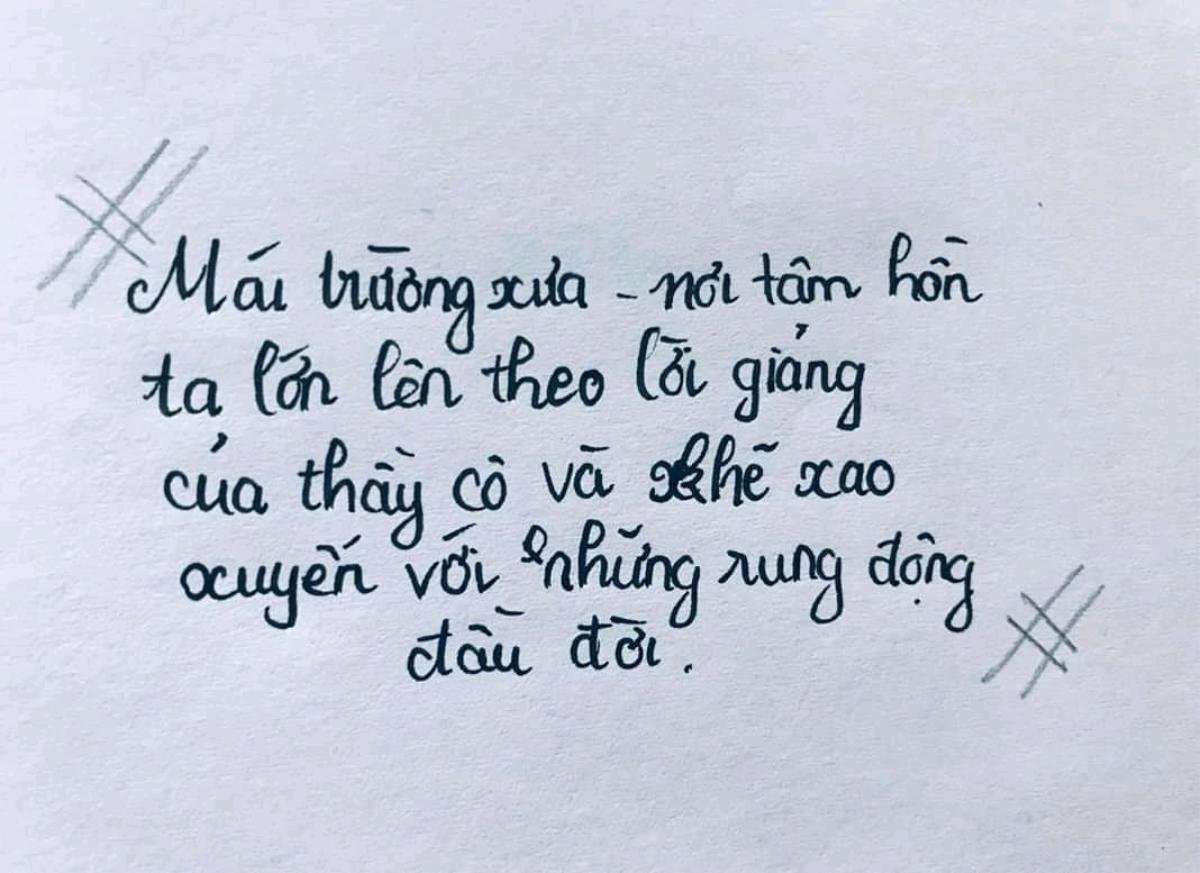 Mái trường xưa - nơi tâm hồn
ta lớn lên theo lời giảng
của thầy cô và khẽ xao
xuyến với những rung động
đầu đời.